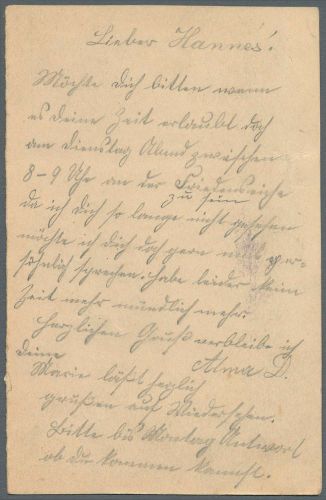 Lieber Hannes!
Möchte Dich bitten wenn
es Deine Zeit erlaubt doch
am Dienstag Abend zwischen
8-9 Uhr an der Friedenseiche
zu sein
da ich Dich so lange nicht gesehen
möchte ich Dich doch gern mal per-
söhnlich sprechen. habe leider kein
Zeit mehr mündlich mehr.
Herzlichen Gruß verbleibe ich
Deine
Alma D.
Marie läßt herzlich
grüßen auf Wiedersehen.
Bitte bis Montag Antwort
ob du kommen kannst.